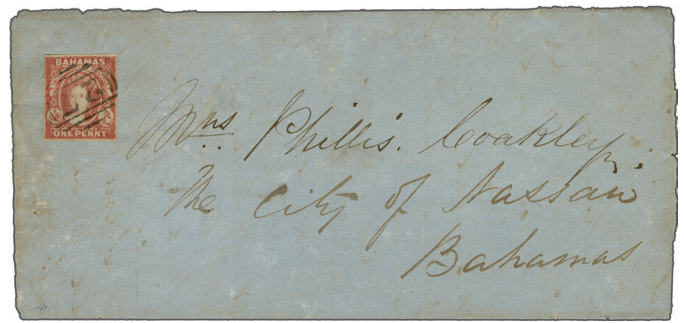 BAHAMAS
ONE PENNY
Mrs. Phillis. Coakley,
The City of Nassau
Bahamas